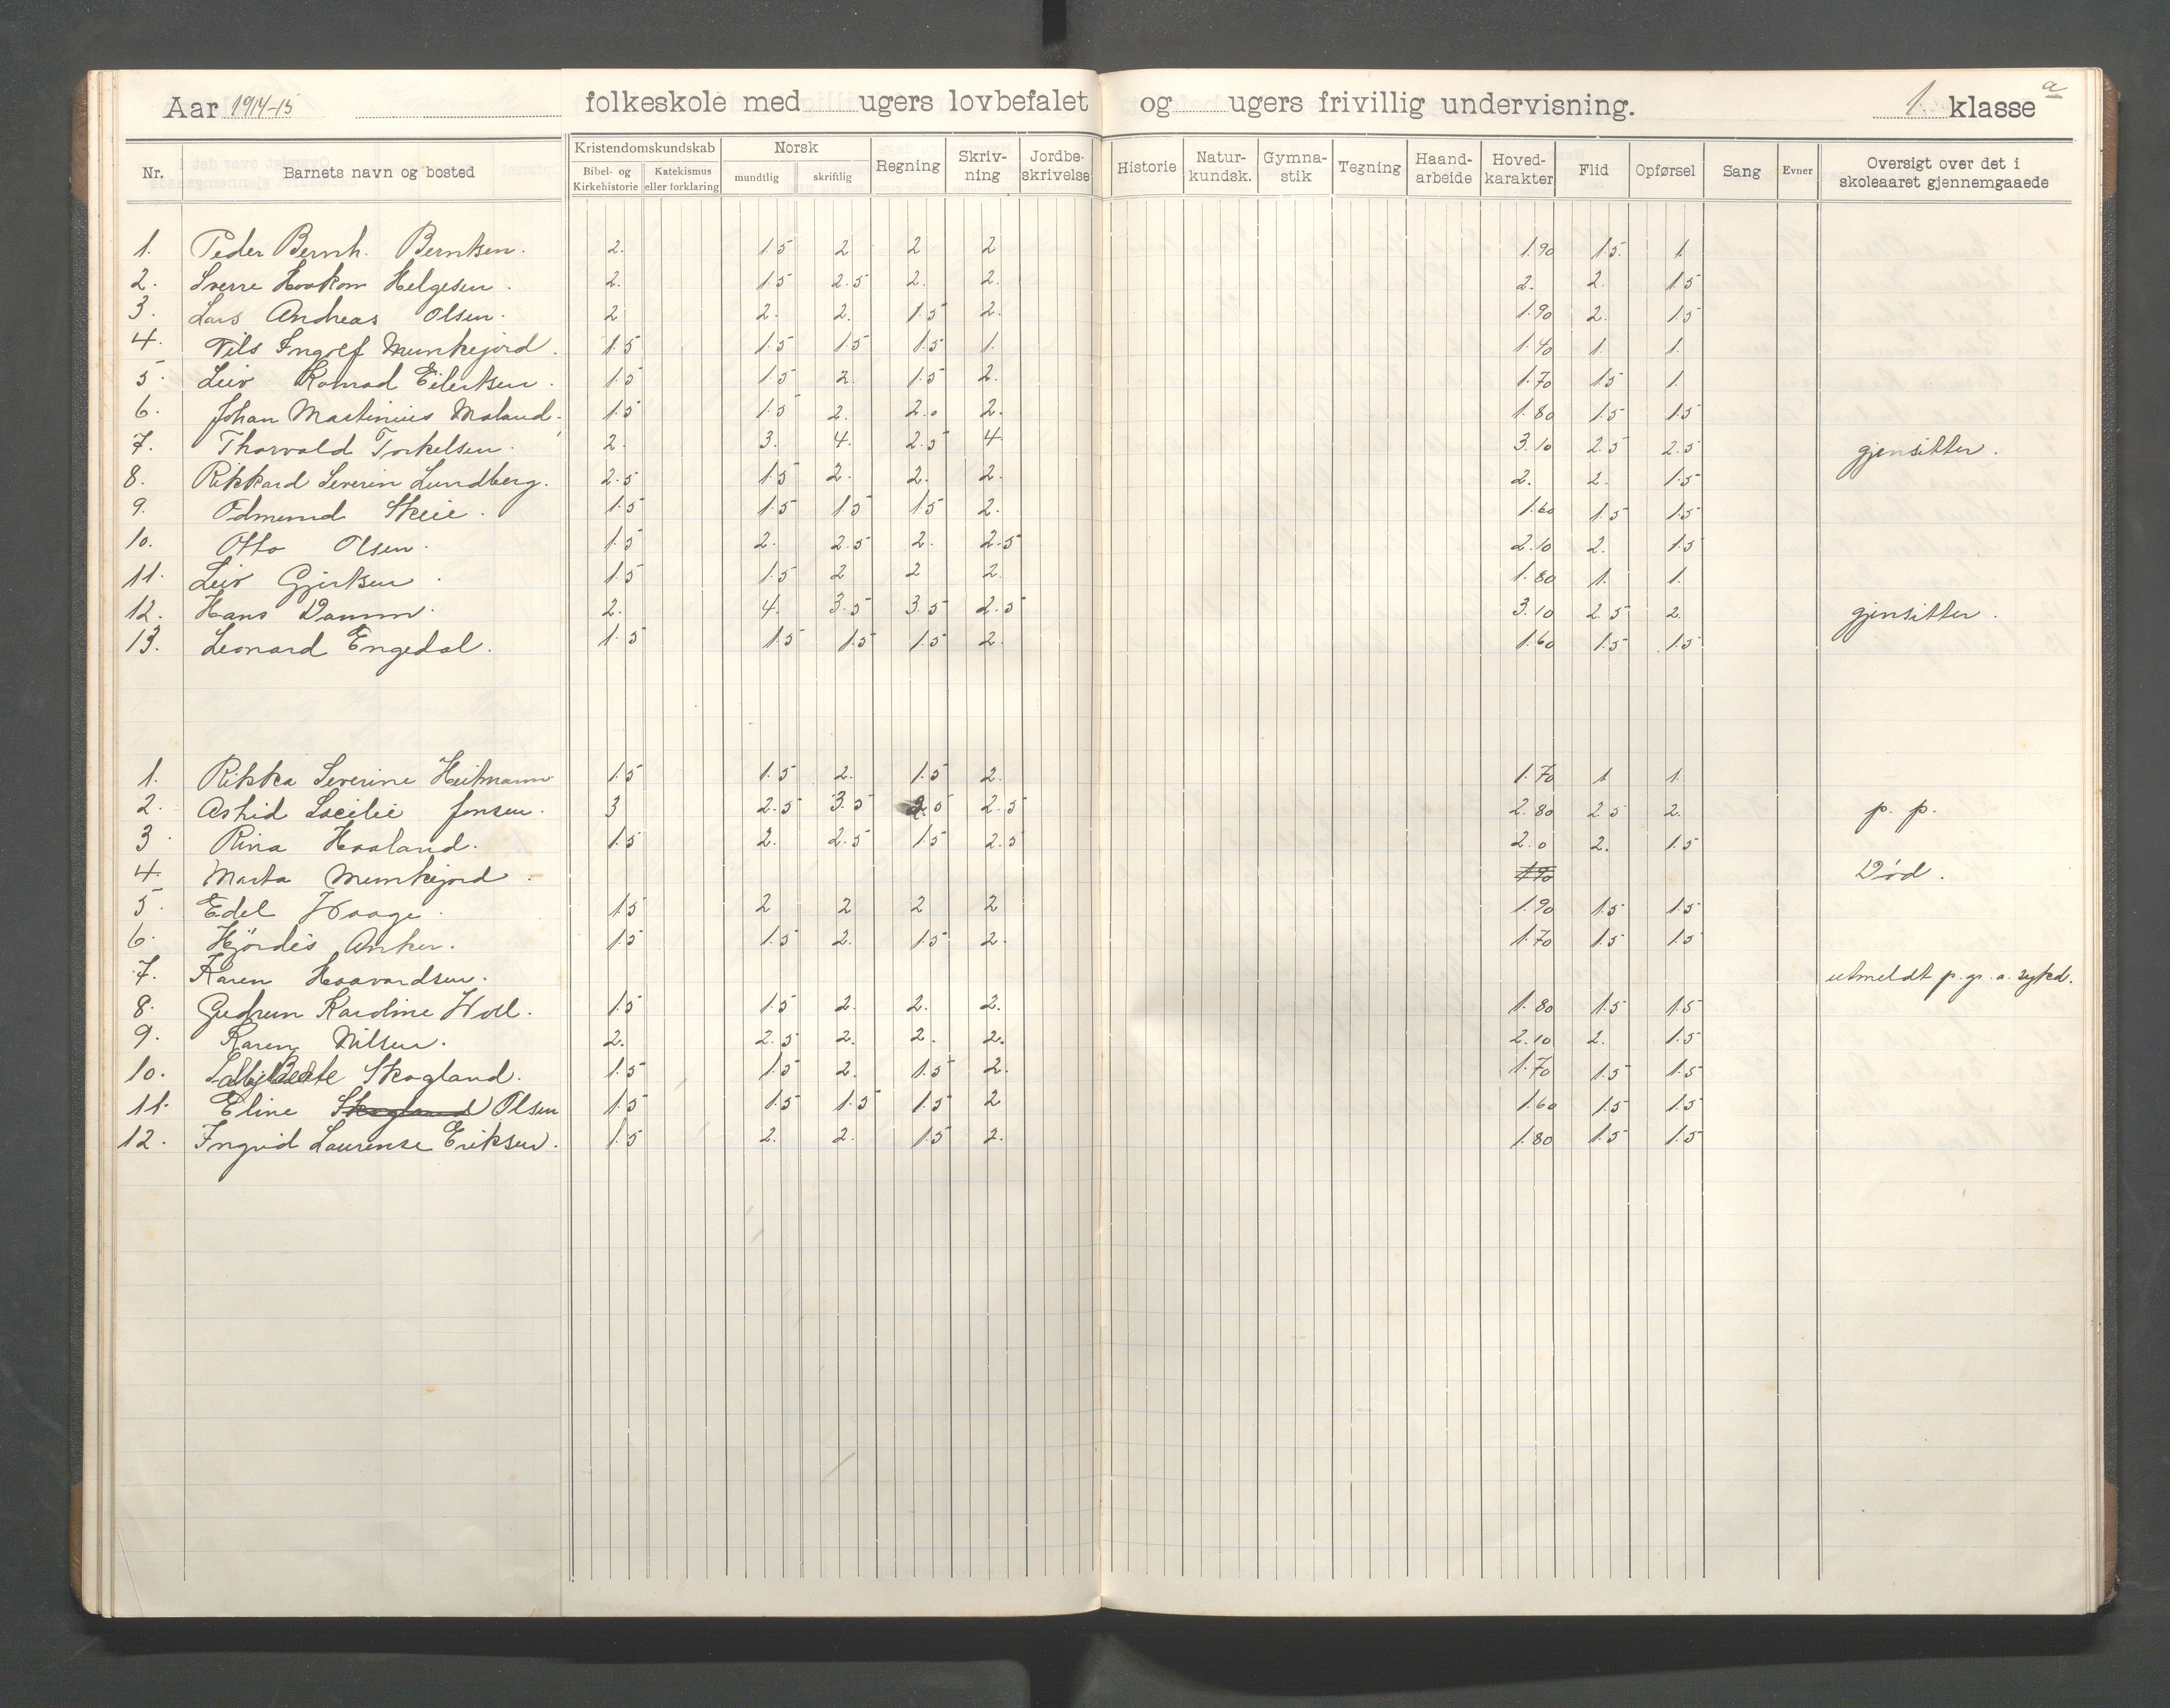 Aar 1914-15 folkeskole med ugers lovbefalet og ugers frivillig undervisning. 1. klasse a
Nr. Barnets navn og bosted Kristendomskundskab Bibel- og Kirkehistorie Katekismus eller forklaring Norsk mundtlig skriftlig Regning Skriv-ning Jordbe-skrivelse Historie Natur-kundsk. Gymna-stik Tegning Haand-arbeide Hoved-karakter Flid Opførsel Sang Evner Oversigt over det i skoleaaret gjennemgaaede
1. Peder Bernh. Berntsen. 2. 1.5 2 2 2 1.90 1.5. 1.
2. Sverre Haakon Helgesen. 2. 1.5 2.5 2. 2. 2. 2. 1.5
3. Lars Andreas Olsen. 2 2. 2. 1.5 2. 1.90 2. 1.5
4. Nils Ingolf Munkejord. 1.5 1.5 1.5 1.5 1. 1.40 1. 1.
5. Leiv Konrad Eilertsen. 1.5 1.5 2. 1.5 2. 1.70 1.5 1.
6. Johan Martinius Maland. 1.5 1.5 2. 2.0 2. 1.80 1.5 1.5
7. Thorvald Torkelsen. 2. 3. 4. 2.5 4 3.10 2.5 2.5 gjensitter.
8. Rikkard Severin Lundberg. 2.5 1.5 2. 2. 2. 2. 2. 1.5
9. Odmund Skeie. 1.5 1.5 1.5 1.5 2. 1.60 1.5 1.5
10. Otto Olsen. 1.5 2. 2.5 2. 2.5 2.10 2. 1.5
11. Leiv Gjertsen. 1.5 1.5 2 2 2. 1.80 1. 1.
12. Hans Damm. 2. 4. 3.5 3.5 2.5 3.10 2.5 2. gjensitter.
13. Leonard Engedal. 1.5 1.5 1.5 1.5 2. 1.60 1.5 1.5
1. Rikka Severine Heitmann 1.5 1.5 2. 1.5 2. 1.70 1 1.
2. Astrid Secilie Jonsen. 3 2.5 3.5 2.5 2.5 2.80 2.5 2. p. p.
3. Rina Haaland. 1.5 2. 2.5 1.5 2.5 2.0 2. 1.5
4. Marta Munkejord. 1.90 Död.
5. Edel Haage. 1.5 2 2 2 2 1.90 1.5 1.5
6. Hjördis Anker. 1.5 1.5 2. 1.5 2. 1.70 1.5 1.5
7. Karen Haavardsen. utmeldt p. gr. a. sykd.
8. Gudrun Karoline Woll. 1.5 1.5 2. 2. 2. 1.80 1.5 1.5
9. Karen Nilsen. 2. 2.5 2. 2. 2. 2.10 2. 1.5
10. Skogland. 1.5 1.5 2. 1.5 2. 1.70 1.5 1.5
11. Eline Skogland Olsen 1.5 1.5 1.5 1.5 2 1.60 1.5 1.5
12. Ingvid Laurense Eriksen. 1.5 2. 2. 1.5 2. 1.80 1.5 1.5